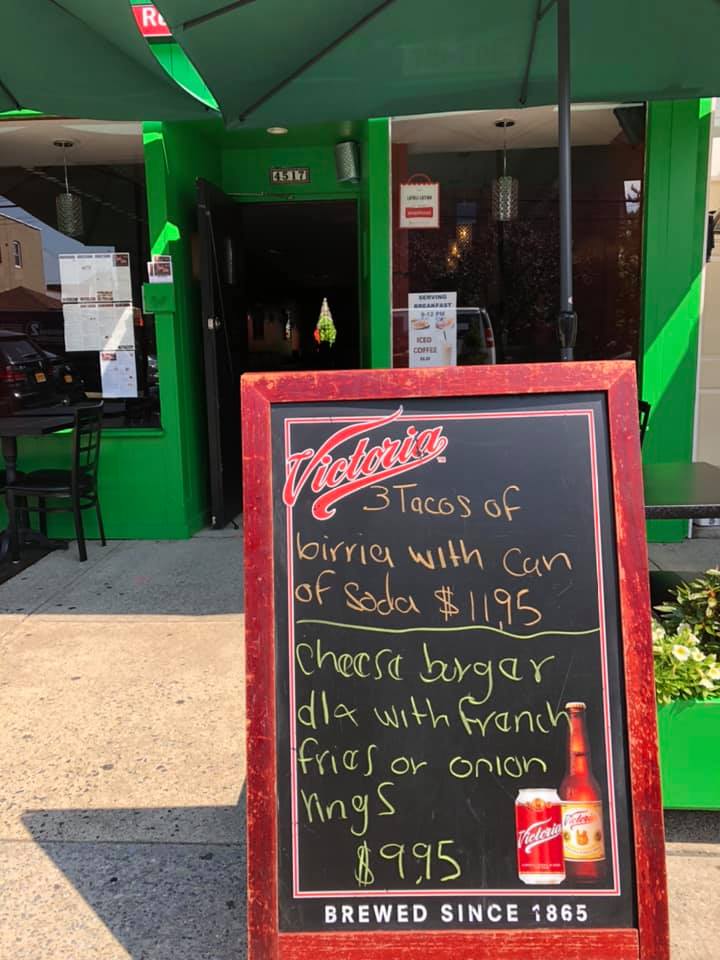 RE
4517
SERVING
BREAKFAST
9-12 PM
ICED
COFFEE
Victoria
3 Tacos of
birria with Can
of Soda $11,95
cheese burger
dlx with french
fries or onion
rings
$9,95
Victoria
Victoria
BREWED SINCE 1865